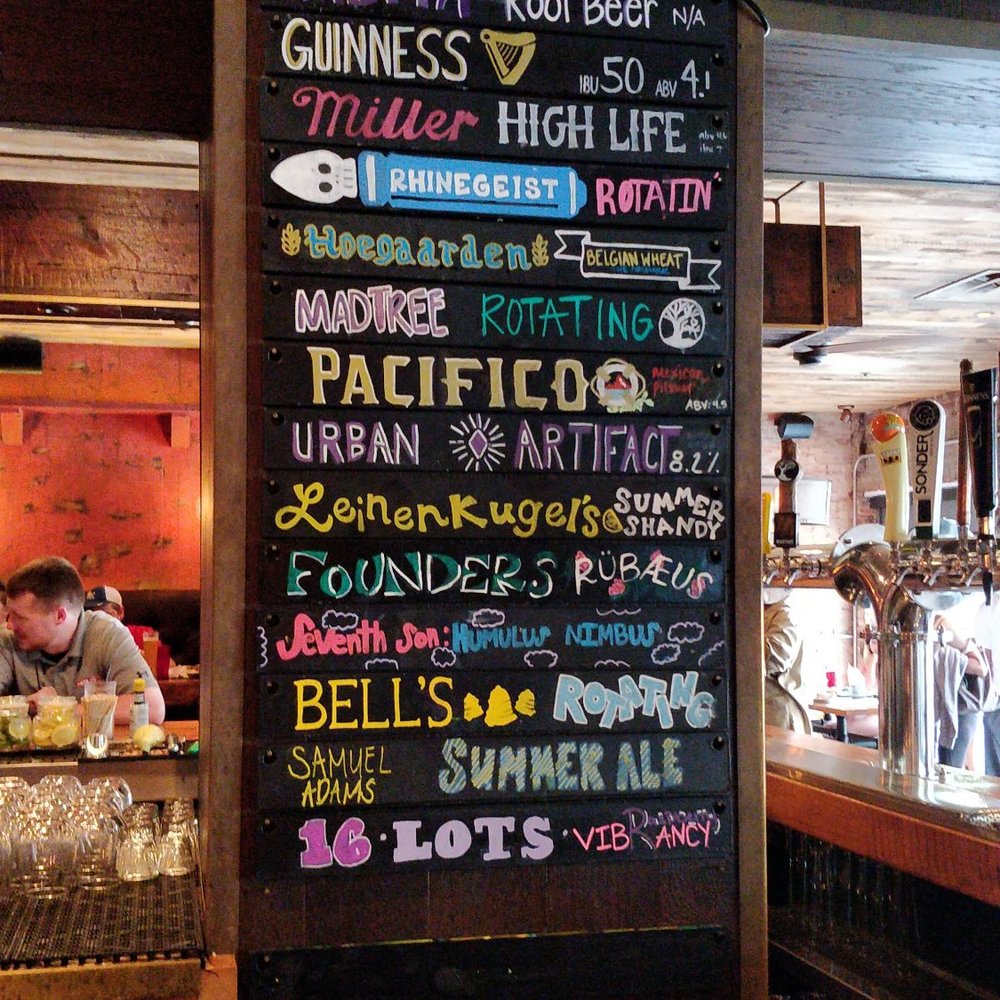 Root Beer N/A
GUINNESS IBU 50 ABV 4.1
Miller HIGH LIFE
RHINEGEIST ROTATIN'
Hoegaarden BELGIAN WHEAT
MADTREE ROTATING
PACIFICO ABV: 4.5
URBAN ARTIFACT 8.2%
Leinenkugel's SUMMER SHANDY
FOUNDERS RÜBÆUS
Seventh Son: HUMULUS NIMBUS
BELL'S ROTATING
SAMUEL ADAMS SUMMER ALE
16 · LOTS · VIBRANCY
SONDER